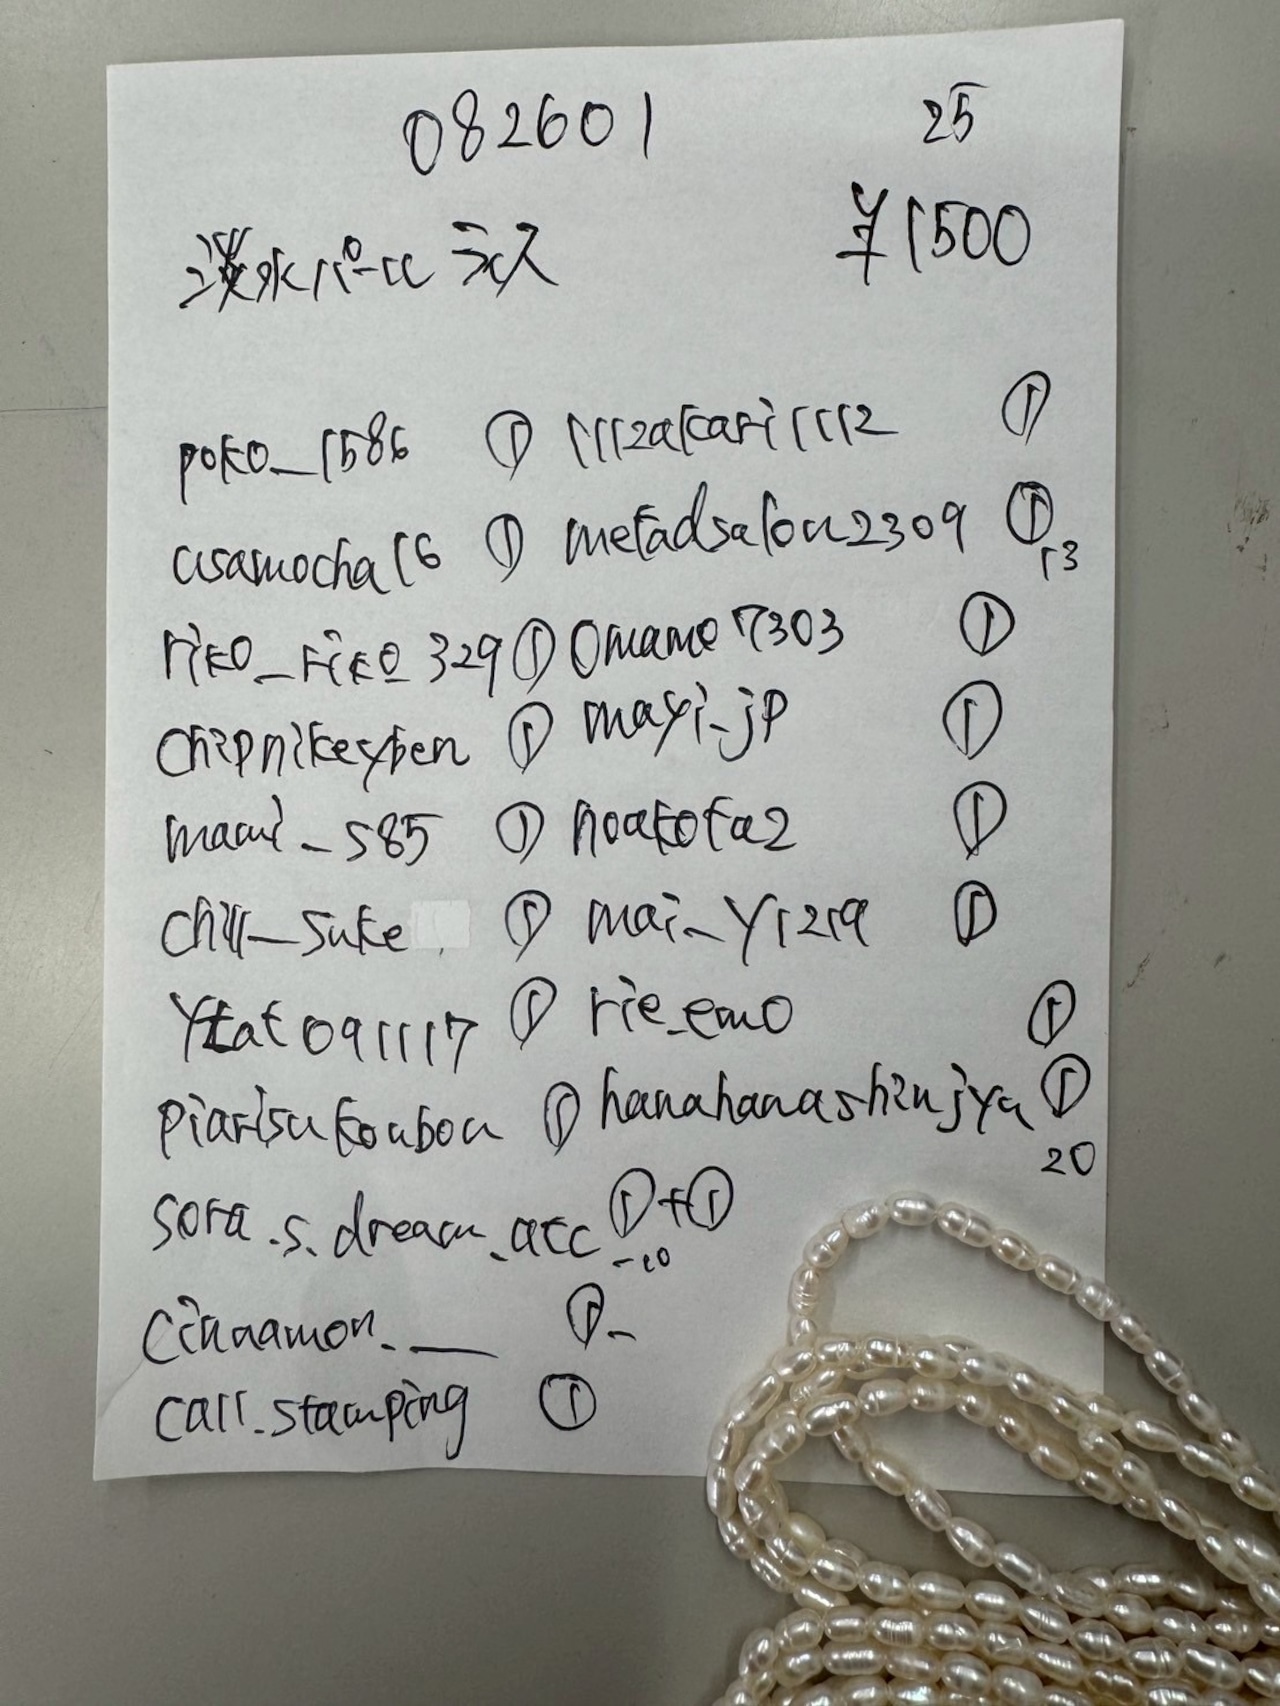 082601 25
淡水パール ライス ¥1500
poko_1586 ① 1112akari1112 ①
usamocha16 ① metadsalon2309 ① 13
riko_riko_329 ① Omame7303 ①
chipnikeyben ① mayi_jp ①
maami_s85 ① noakota2 ①
chill_suke ① mai_y1219 ①
Ytat091117 ① rie_emo ①
piarisukoubou ① hanahanashinjya ① 20
sora.s.dream_acc ①+① -10
cinnamon.__ ①-
call.stamping ①